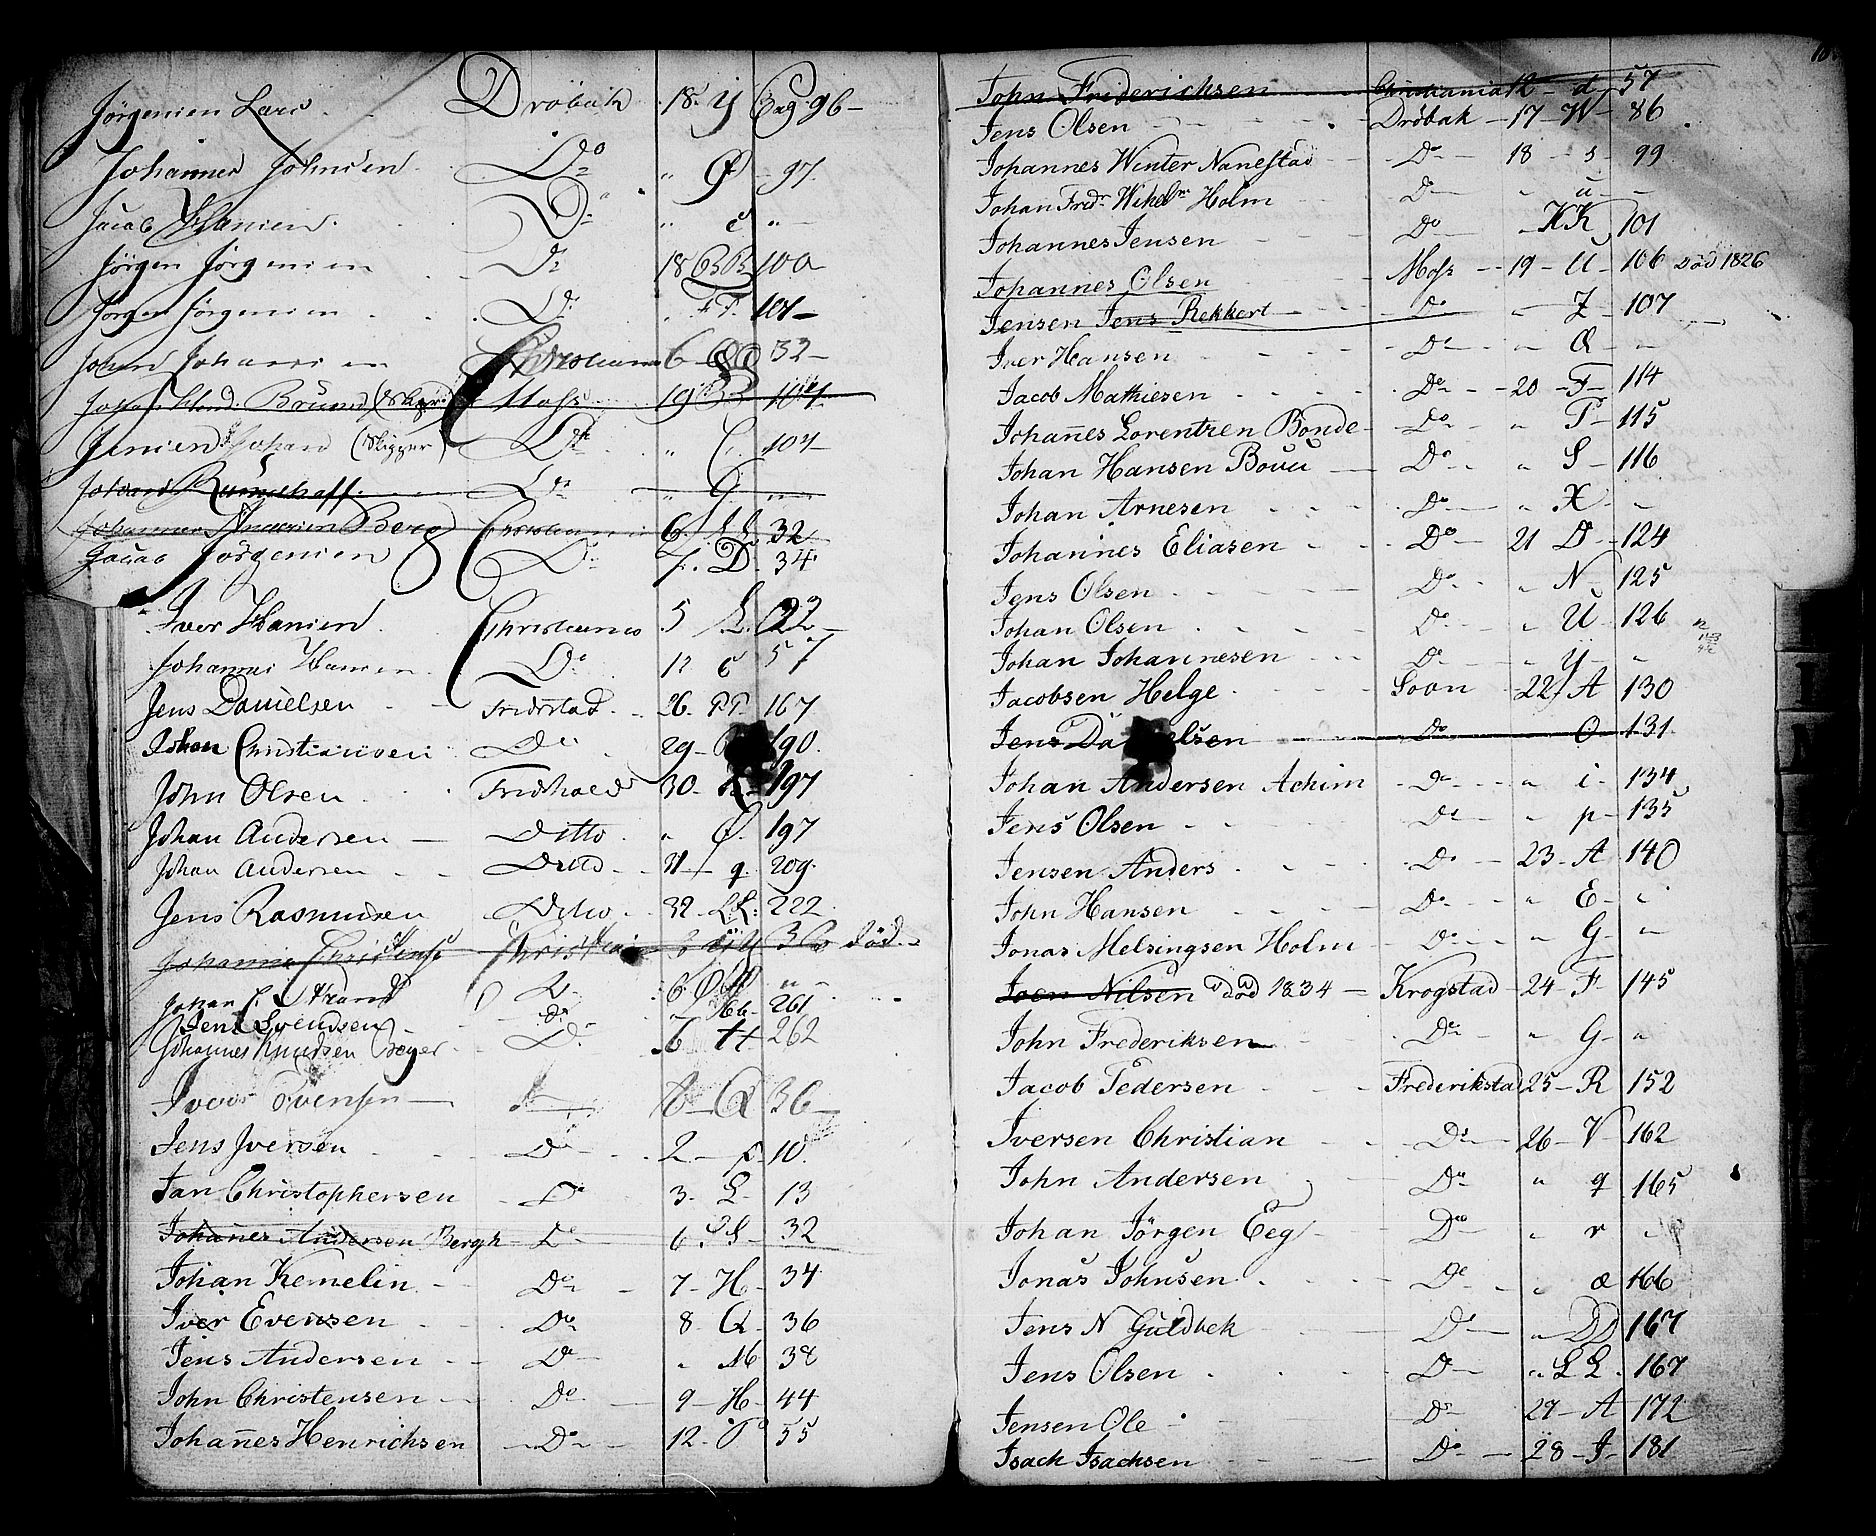 Jörgensen Lars Dröbak 18. y Pag 96
Johannes Johnsen Do " Ø 97
Jacob Hansen Do " " "
Jörgen Jörgensen Do 18 BB 100
Jörgen Jörgensen Do " FF. 101
Johan Johansen Christiania 6 32
Brun Moss 19 104
Jensen Johan (Skipper) Do " 104
Do " G "
Johannes Andersen Berg Christiania 6. LL. 32
Jacob Jörgensen Do 7. D. 34
Iver Hansen Christiania 5 L. 22
Johannes Hansen Do 12 c 57
Jens Danielsen Fridrstad 26. PP. 167
Johan Christiansen Do 29 190.
John Olsen Fridhald 30. 197
Johan Andersen Ditto " 197
Johan Andersen Ditto 31 q. 209.
Jens Rasmusen Ditto 32. LL: 222
Christiania 36 död
Johan C. Strand Do 6. "
Jens Svendsen Do 261
Johannes Knudsen Do 6 H 262
Iver Evensen Do 8 Q 36
Jens Iversen Do 2 p. 10.
Jan Christophersen Do 3. L. 13
Johañes Andersen Bergh Do 6. S. 32
Johan Kemelin Do 7. H. 34
Iver Evensen Do 8. Q. 36
Jens Andersen Do " M 38
John Christensen Do 9 H. 44
Johañes Henrichsen Do 12. P 55
John Friderichsen Christiania 12 d 57
Jens Olsen Dröbak 17 W 86
Johannes Winter Nanestad Do 18 s 99
Johan Fredr Wilhelm Holm Do " u "
Johannes Jensen Do " KK 101
Johannes Olsen Moss 19 U 106 död 1826
Jensen Jens Rekkert Do " Z 107
Iver Hansen Do " Q "
Jacob Mathiesen Do 20 F 114
Johañes Lorentzen Bonde Do " P 115
Johan Hansen Do " S 116
Johan Arnesen Do " X "
Johannes Eliasen Do 21 D 124
Jens Olsen Do " N 125
Johan Olsen Do " U 126
Johan Johannesen Do " Y "
Jacobsen Helge Soon 22 A 130
Jens Da elsen Do O 131
Johan Andersen Achim Do " i 134
Jens Olsen Do " p 135
Jensen Anders Do 23. A 140
John Hansen Do " E "
Jonas Melsingsen Holm Do " G "
Joen Nilsen död 1834 Krogstad 24 F 145
John Frederiksen Do " G "
Jacob Pedersen Frederikstad 25 R 152
Iversen Christian Do 26 V 162
John Andersen Do " q 165
Johan Jörgen Eeg Do " r "
Jonas Johnsen Do " æ 166
Jens N Guldbek Do " DD 167
Jens Olsen Do " LL. 167
Jensen Ole Do 27 A 172
Isach Isachsen Do 28 J 181